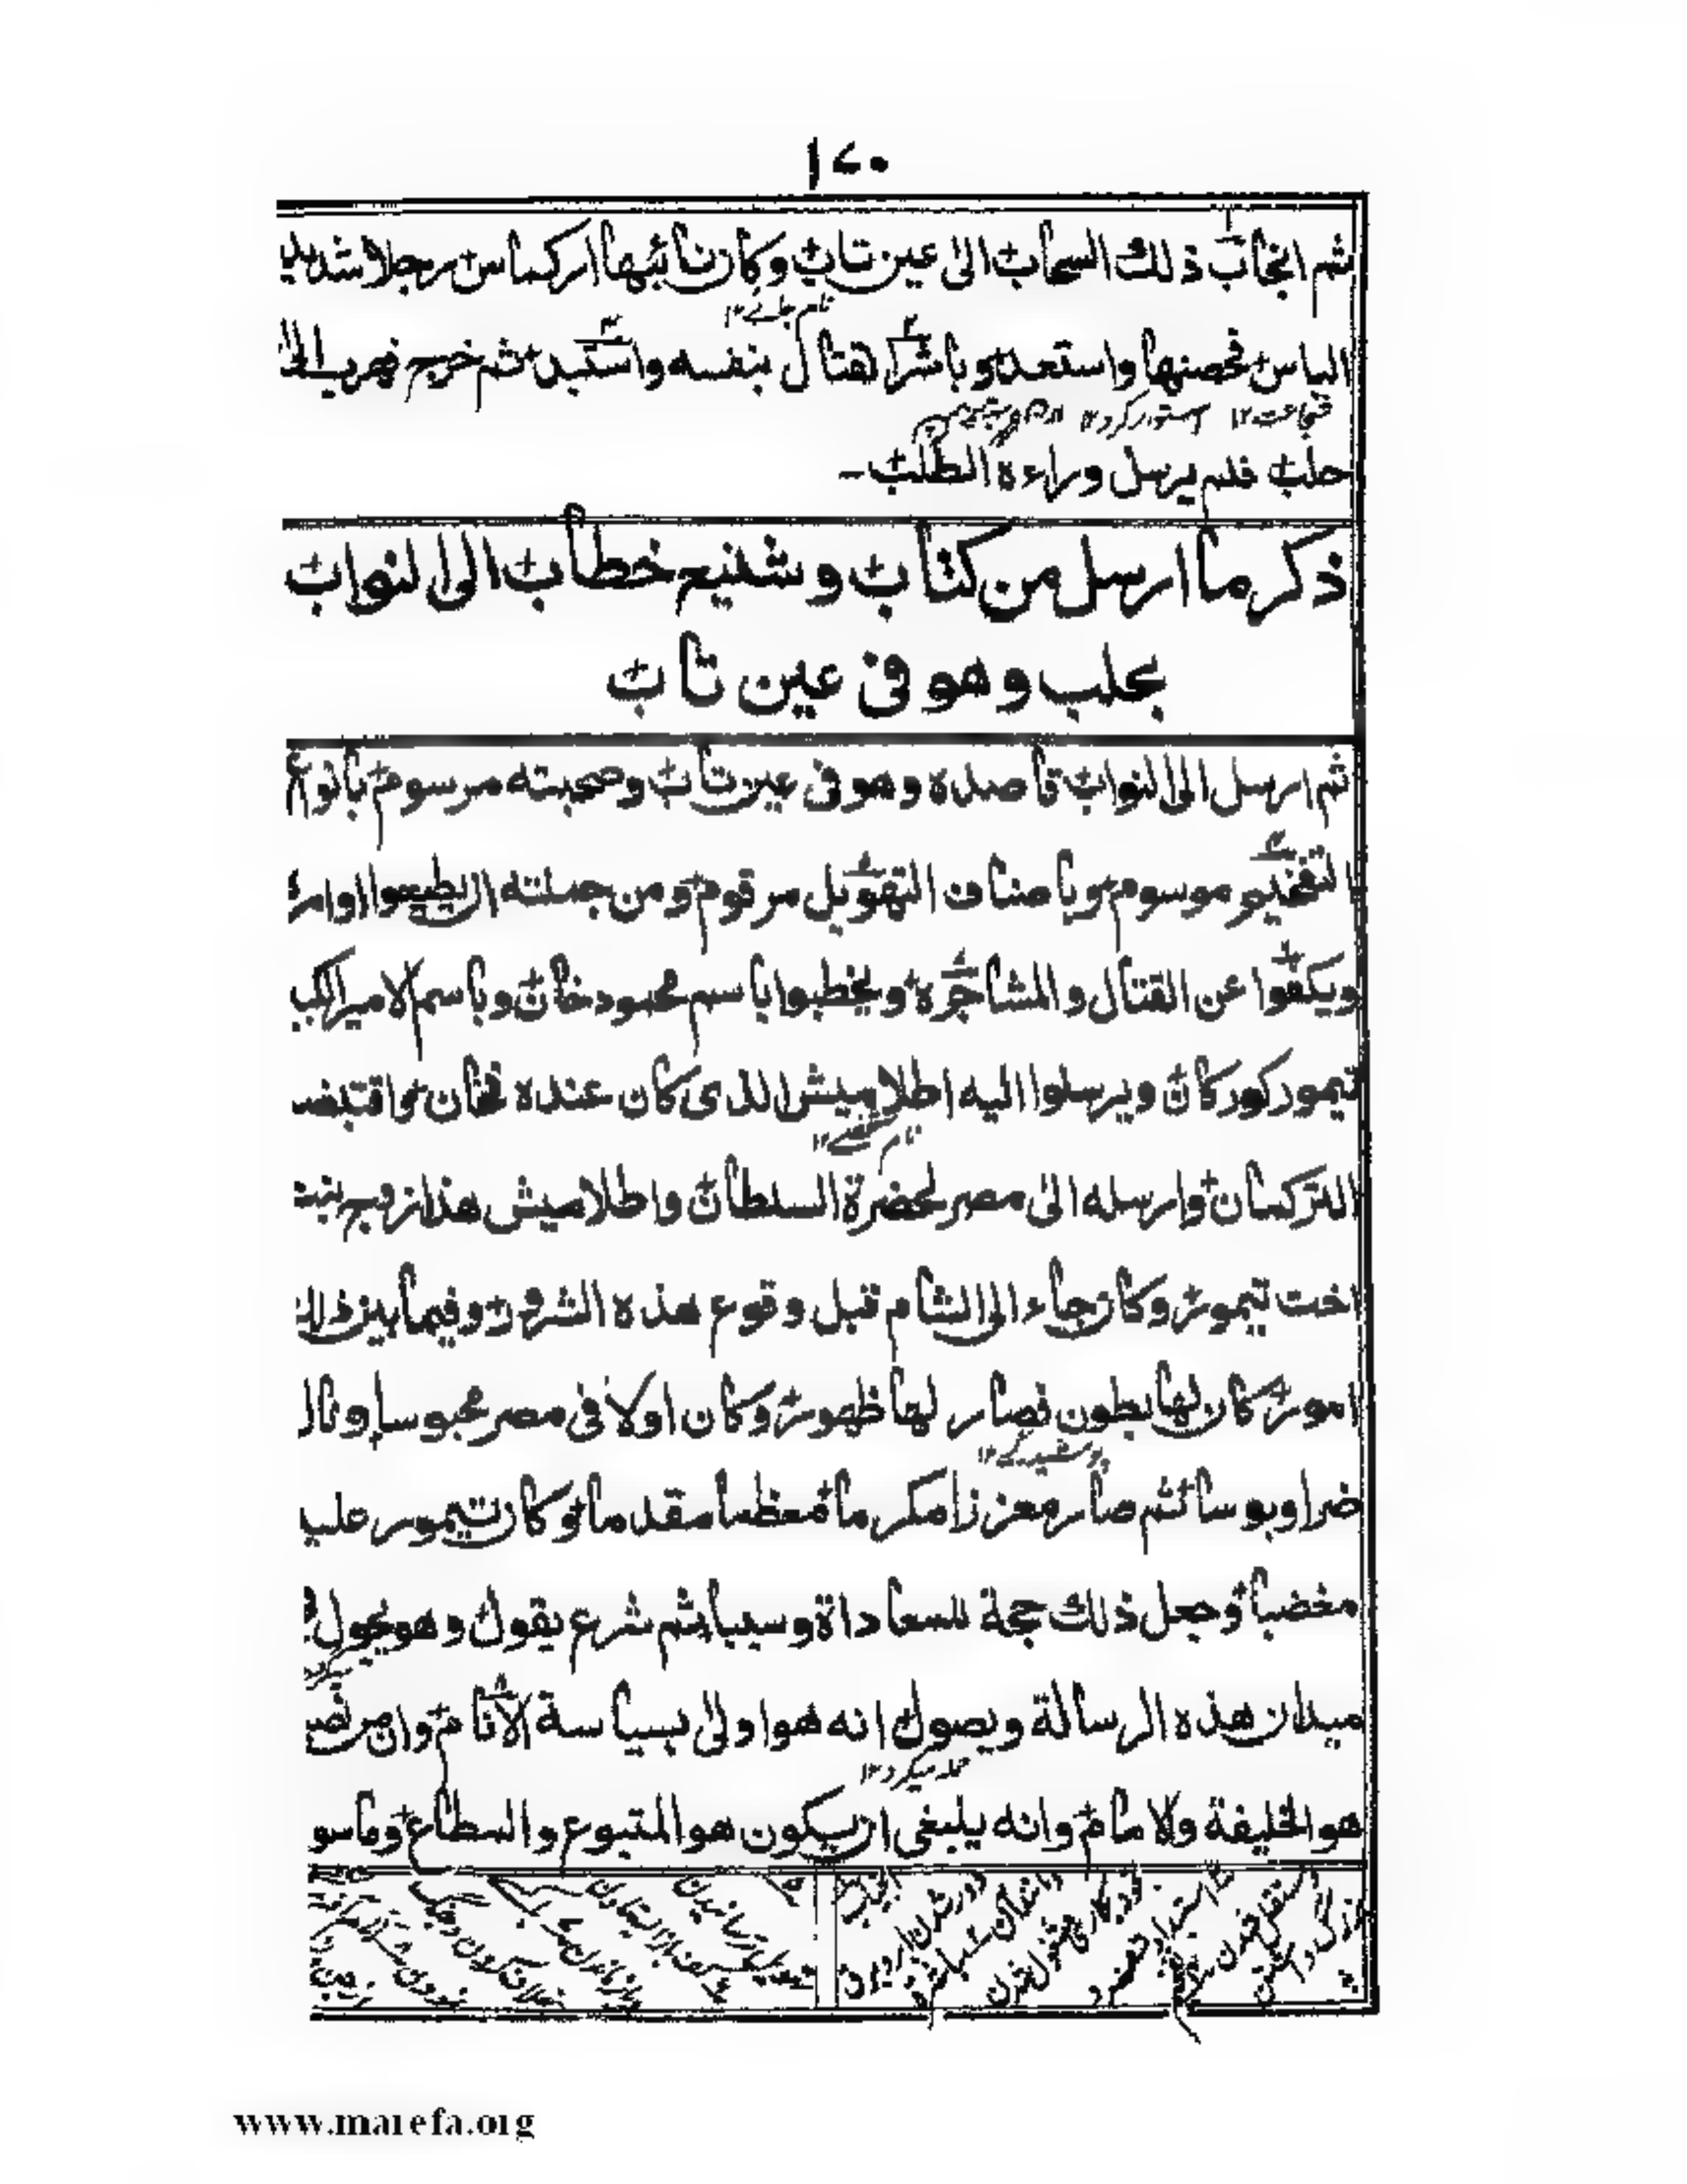 ١٤٠
ثم انجاب ذلك السحاب الى عين تاب وكان نائبها اركماس رجلا شديد
نام جائے ١٢
الباس فحصنها واستعد وباشر القتال بنفسه واستبد ثم خرج فهرب الى
حلب فلم يرسل وراءه الطلب -
ذكر ما ارسل من كتاب وشنيع خطاب الى النواب
بحلب وهو فى عين تاب
ثم ارسل الى النواب قاصده وهو فى عين تاب وصحبته مرسوم بانواع
التفخيم موسوم وباصناف التهويل مرقوم ومن جملته ان يطيعوا اوامره
ويكفوا عن القتال والمشاجرة ويخطبوا باسم محمود خان وباسم الامير الكب
تيمور كوركان ويرسلوا اليه اطلاميش الذى كان عنده فخان واقتبض
نام شخصے ١٢
التركمان وارسله الى مصر لحضرة السلطان واطلاميش هذا زوج بنت
اخت تيمور وكان جاء الى الشام قبل وقوع هذه الشرور وفيما بين ذلك
امور كان لها بطون فصار لها ظهور وكان اولا فى مصر محبوسا ونال
پوشيدگے ١٢
ضرا وبوسا ثم صار معززا مكرما معظما مقدما وكان تيمور عليه
مغضبا وجعل ذلك حجة للمعاداة وسببا ثم شرع يقول وهو يجول فى
ميدان هذه الرسالة ويصول انه هو اولى بسياسة الانام وان من نصبه
حمله ميكرد ١٢
هو الخليفة والامام وانه ينبغى ان يكون هو المتبوع والمطاع وما سو
www.marefa.org